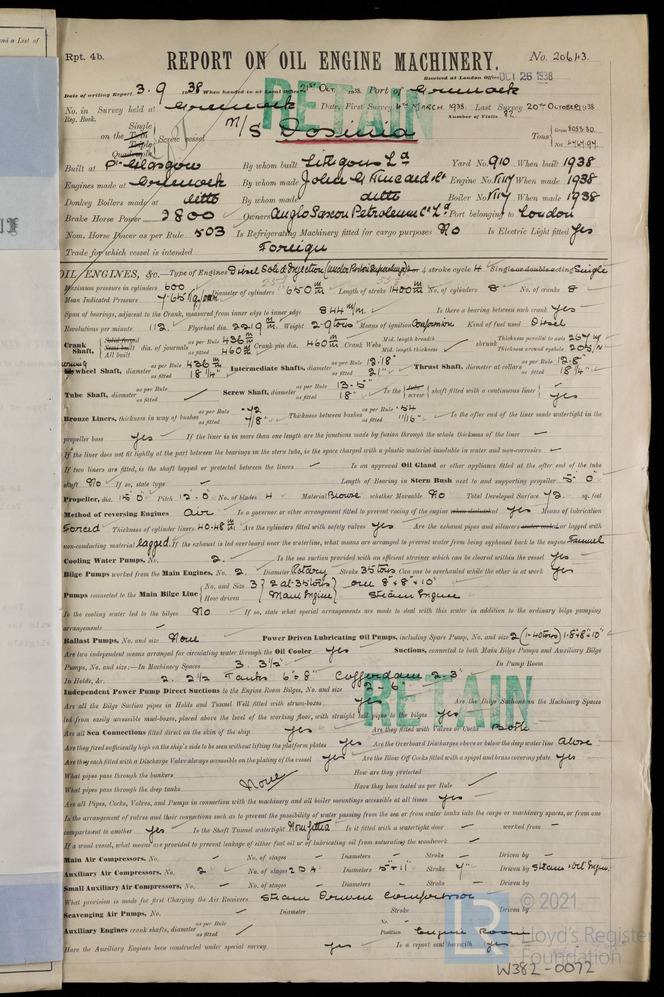 Rpt. 4b.
REPORT ON OIL ENGINE MACHINERY.
No. 20643.
Received at London Office OCT 26 1938
Date of writing Report 3. 9. 1938 When handed in at Local Office 21st Oct. 1938 Port of Greenock
No. in Survey held at Greenock Date, First Survey 4th March 1938 Last Survey 20th October 1938
Reg. Book. Number of Visits 82
RETAIN
Single
on the Twin Screw vessel M/S Dosinia
Triple
Quadruple
Tons Gross 8053.30
Net 4747.94
Built at Pt Glasgow By whom built Lithgows Ld Yard No. 910 When built 1938
Engines made at Greenock By whom made John G Kincaid & Co Engine No. When made 1938
Donkey Boilers made at ditto By whom made ditto Boiler No. When made 1938
Brake Horse Power 2800 Owners Anglo Saxon Petroleum Co Ld Port belonging to London
Nom. Horse Power as per Rule 503 Is Refrigerating Machinery fitted for cargo purposes No Is Electric Light fitted Yes
Trade for which vessel is intended Foreign
OIL ENGINES, &c. Type of Engines Diesel Solid Injection 4 stroke cycle 4 Single or double acting Single
Maximum pressure in cylinders 600 Diameter of cylinders 650 m/m Length of stroke 1400 m/m No. of cylinders 8 No. of cranks 8
Mean Indicated Pressure
Span of bearings, adjacent to the Crank, measured from inner edge to inner edge 844 m/m Is there a bearing between each crank yes
Revolutions per minute 112 Flywheel dia. 2219 m/m Weight 2.9 tons Means of ignition Compression Kind of fuel used Diesel
Crank Shaft, Solid forged Semi built All built dia. of journals as per Rule 436 m/m as fitted 460 m/m Crank pin dia. 460 m/m Crank Webs Mid. length breadth Mid. length thickness shrunk Thickness parallel to axis 267 m/m Thickness around eyehole 205 m/m
Flywheel Shaft, diameter as per Rule 436 m/m as fitted 18 1/4" Intermediate Shafts, diameter as per Rule 12.18" as fitted 21" Thrust Shaft, diameter at collars as per Rule 12.8" as fitted 18 1/4"
Tube Shaft, diameter as per Rule as fitted Screw Shaft, diameter as per Rule 13.5" as fitted 18" Is the tube screw shaft fitted with a continuous liner yes
Bronze Liners, thickness in way of bushes as per Rule .72 as fitted 7/8" Thickness between bushes as per Rule .54 as fitted 11/16" Is the after end of the liner made watertight in the
propeller boss yes If the liner is in more than one length are the junctions made by fusion through the whole thickness of the liner –
If the liner does not fit tightly at the part between the bearings in the stern tube, is the space charged with a plastic material insoluble in water and non-corrosive –
If two liners are fitted, is the shaft lapped or protected between the liners – Is an approved Oil Gland or other appliance fitted at the after end of the tube
shaft No If so, state type – Length of Bearing in Stern Bush next to and supporting propeller 5' 0"
Propeller, dia. 15' 0" Pitch 12' 0" No. of blades 4 Material Bronze whether Moveable No Total Developed Surface 72 sq. feet
Method of reversing Engines Air Is a governor or other arrangement fitted to prevent racing of the engine when declutched yes Means of lubrication
Forced Thickness of cylinder liners 40-48 m/m Are the cylinders fitted with safety valves yes Are the exhaust pipes and silencers water cooled or lagged with
non-conducting material lagged. If the exhaust is led overboard near the waterline, what means are arranged to prevent water from being syphoned back to the engine Funnel
Cooling Water Pumps, No. 2. Is the sea suction provided with an efficient strainer which can be cleared within the vessel yes
Bilge Pumps worked from the Main Engines, No. 2. Diameter Rotary Stroke 35 tons Can one be overhauled while the other is at work yes
Pumps connected to the Main Bilge Line No. and Size 3 2 at 35 tons one 8" × 8" × 10"
How driven Main Engine Steam Engine
Is the cooling water led to the bilges No If so, state what special arrangements are made to deal with this water in addition to the ordinary bilge pumping
arrangements –
Ballast Pumps, No. and size None Power Driven Lubricating Oil Pumps, including Spare Pump, No. and size 2 (1-40 tons) 1-8×8×10"
Are two independent means arranged for circulating water through the Oil Cooler yes Suctions, connected to both Main Bilge Pumps and Auxiliary Bilge
Pumps, No. and size:—In Machinery Spaces 3. 3 1/2" In Pump Room
In Holds, &c. 2. 2 1/2" Tanks 6" & 8" Cofferdam 2-3"
Independent Power Pump Direct Suctions to the Engine Room Bilges, No. and size 2-6"
RETAIN
Are all the Bilge Suction pipes in Holds and Tunnel Well fitted with strum-boxes yes Are the Bilge Suctions in the Machinery Spaces
led from easily accessible mud-boxes, placed above the level of the working floor, with straight tail pipes to the bilges yes
Are all Sea Connections fitted direct on the skin of the ship yes Are they fitted with Valves or Cocks Both
Are they fixed sufficiently high on the ship's side to be seen without lifting the platform plates yes Are the Overboard Discharges above or below the deep water line above
Are they each fitted with a Discharge Valve always accessible on the plating of the vessel yes Are the Blow Off Cocks fitted with a spigot and brass covering plate yes
What pipes pass through the bunkers None How are they protected
What pipes pass through the deep tanks Have they been tested as per Rule
Are all Pipes, Cocks, Valves, and Pumps in connection with the machinery and all boiler mountings accessible at all times yes
Is the arrangement of valves and their connections such as to prevent the possibility of water passing from the sea or from water tanks into the cargo or machinery spaces, or from one
compartment to another yes Is the Shaft Tunnel watertight None fitted Is it fitted with a watertight door – worked from –
If a wood vessel, what means are provided to prevent leakage of either fuel oil or of lubricating oil from saturating the woodwork –
Main Air Compressors, No. – No. of stages – Diameters – Stroke – Driven by –
Auxiliary Air Compressors, No. 2 No. of stages 2 Diameters 5" × 11" Stroke 4" Driven by Steam & Oil Engine.
Small Auxiliary Air Compressors, No. – No. of stages – Diameters – Stroke – Driven by –
What provision is made for first Charging the Air Receivers Steam Driven Compressor
Scavenging Air Pumps, No. – Diameter Stroke – Driven by
Auxiliary Engines crank shafts, diameter as per Rule as fitted No. Position Engine Room
Have the Auxiliary Engines been constructed under special survey yes Is a report sent herewith yes
© 2021
LR
Lloyd's Register
Foundation
W382-0072